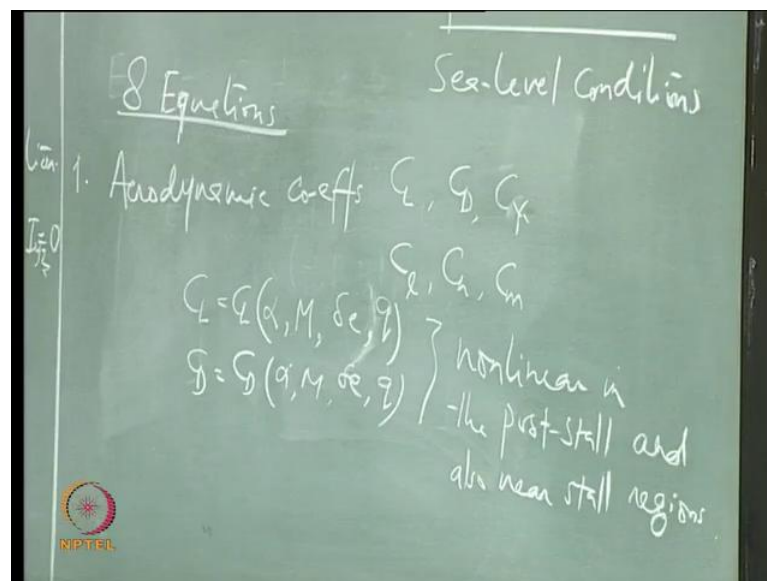 8 Equations
Sea-Level Conditions
1. Aerodynamic co-effs C_L, C_D, C_Y
C_l, C_n, C_m
C_L = C_L(α, M, δe, q)
C_D = C_D(α, M, δe, q)
nonlinear in
the post-stall and
also near stall regions.
NPTEL